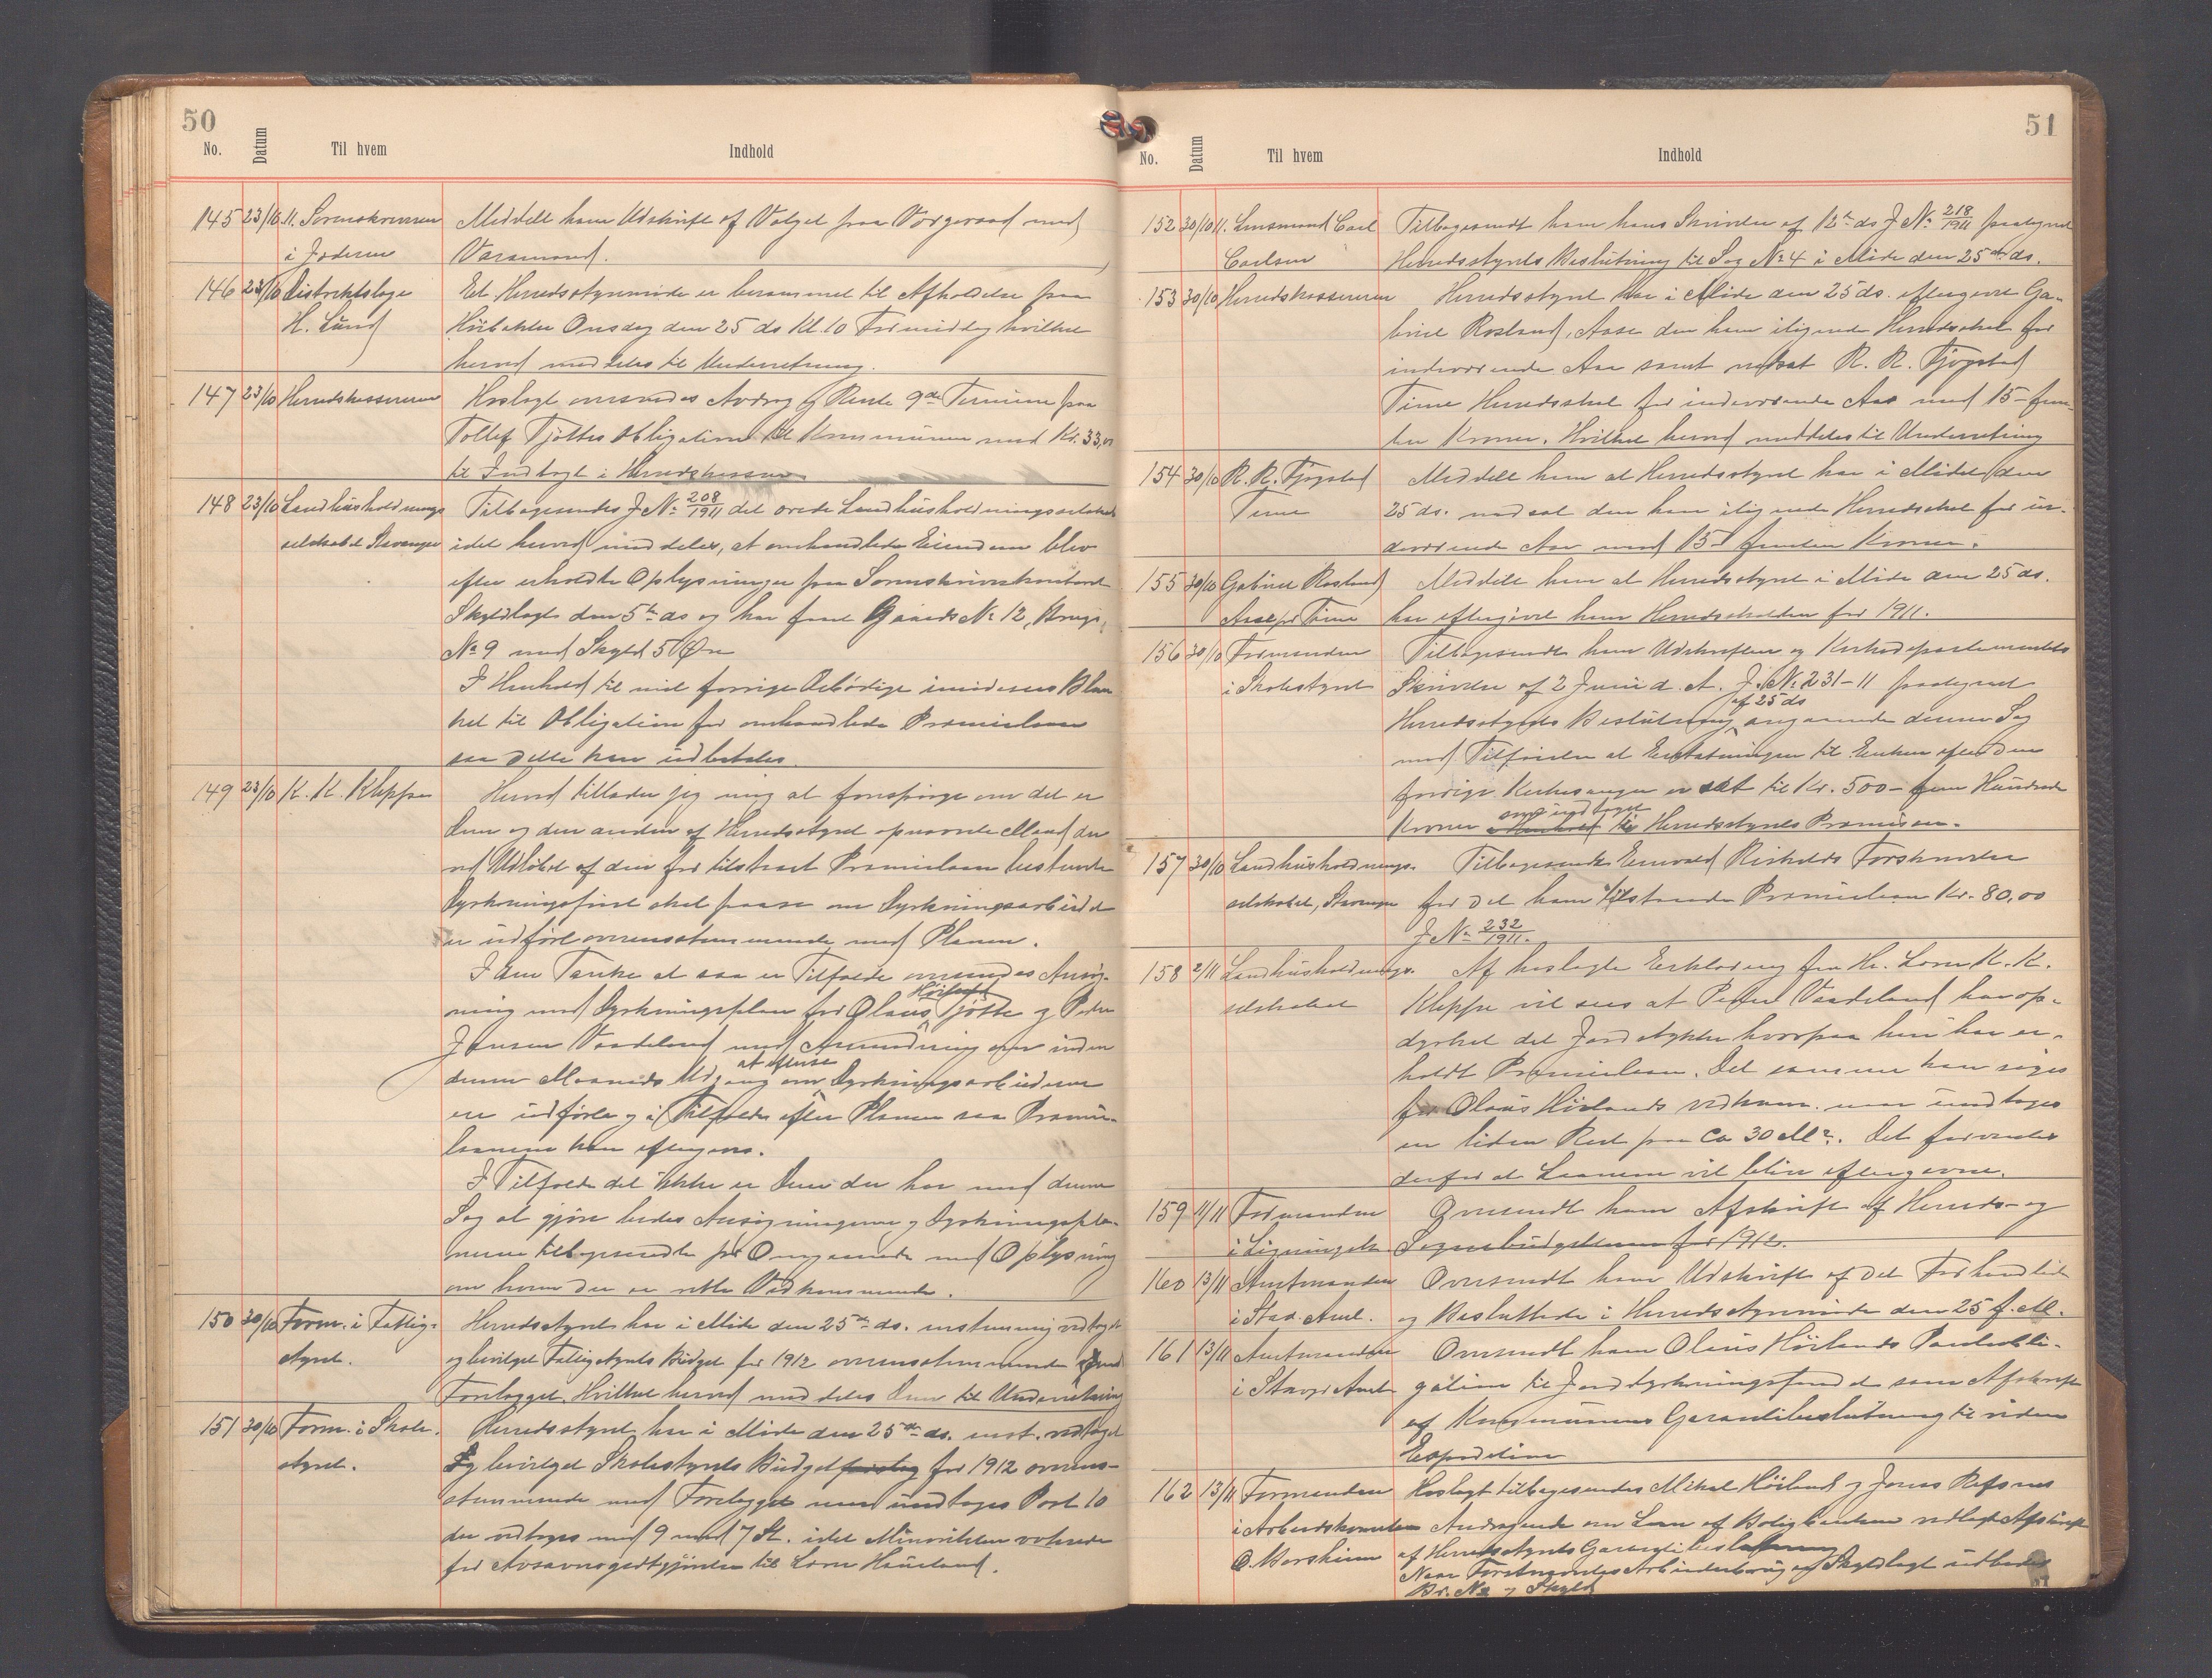 50
No. Datum Til hvem Indhold
145 23/10 11. Sorenskriveren Meddelt ham Udskrift af Valget paa Vergeraad med
i Jæderen Varamænd.
146 23/10 Distriktslæge Et Herredsstyremøde er berammet til Afholdelse paa
H. Lund Høibakke Onsdag den 25 ds Kl. 10 Formiddag hvilket
herved meddeles til Underretning.
147 23/10 Herredskassereren Hoslagt oversendes Avdrag og Rente 9de Termine fra
Tollef Tjøttes Obligation til Kommunen med Kr. 33,
til Indtægt i Herredskassen.
148 23/10 Landhusholdnings Tilbagesendes J № 208/1911 det ærede Landhusholdningsselskab
selskabet Stavanger idet herved meddeles, at omhandlede Eiendom blev
efter erholdte Oplysninger fra Sorenskriverkontoret
Skyldlagt den 5te ds og har faaet Gaards № 12, Brugs
№ 9 med Skyld 5 Øre
I Henhold til mit forrige Ærbødige imødesees Blan
ket til Obligation for omhandlede Præmielaan
saa dette kan udbetales.
149 23/10 K. K. Kleppe Herved tillader jeg mig at forespørge om det er
Dem og den anden af Herredsstyret opnævnte Mand der
ved Udløbet af den for tilstaaet Præmielaan bestemte
Dyrkningsfrist skal paase om Dyrkningsarbeidet
er udført overensstemmende med Planen.
I den Tanke at saa er Tilfælde oversendes Ansøg-
Høiland
ning med Dyrkningsplan for Olaus Tjøtte og Peder
Jensen Vaadeland med Anmodning om inden
at eftersee
denne Maaneds Udgang om Dyrkningsarbeiderne
er udførte og i Tilfælde efter Planen saa Præmie-
laanene kan eftergives.
I Tilfælde det ikke er Dem der har med denne
Sag at gjøre bedes Ansøgningerne og Dyrkningspla-
nerne tilbagesendte pr Omgaaende med Oplysning
om hvem der er rette Vedkommende.
150 30/10 Form. i Fattig- Herredsstyret har i Møde den 25de ds. enstemmig vedtaget
styret. og bevilget Fattigstyrets Budget for 1912 overensstemmende med
Forelægget. Hvilket herved meddeles Dem til Underretning
151 30/10 Form. i Skole- Herredsstyret har i Møde den 25de ds. enst. vedtaget
styret. og bevilget Skolestyrets Budgetforslag for 1912 overens-
stemmende med Forelægget men undtages Post 10
der vedtoges med 9 mod 7 St. idet Minoriteten voterede
for Avsavnsgodtgjørelse til Lærer Haueland.
51
No. Datum Til hvem Indhold
152 30/10 11. Lensmand Carl Tilbagesendt ham hans Skrivelse af 12te ds J № 218/1911 paategnet
Carlsen Herredsstyrets Beslutning til Sag № 4 i Møde den 25de ds.
153 30/10 Herredskassereren Herredsstyret har i Møde den 25 ds. eftergivet Ga-
briel Rosland, Aase den ham ilignede Herredsskat for
indeværende Aar samt nedsat R. R. Fjogstad
Time Herredsskat for indeværende Aar med 15 – fem-
ten Kroner. Hvilket herved meddeles til Underretning
154 30/10 R. R. Fjogstad Meddelt ham at Herredsstyret har i Mødet den
Time 25 ds. nedsat den ham ilignede Herredsskat for in-
deværende Aar med 15 – femten Kroner.
155 30/10 Gabriel Rosland Meddelt ham at Herredsstyret i Møde den 25 ds.
Aase pr Time har eftergivet ham Herredsskatten for 1911.
156 30/10 Formanden Tilbagesendt ham Udskriften og Kirkedepartementets
i Skolestyret Skrivelse af 2 Juni d. A. J. № 231–11 paategnet
af 25 ds
Herredsstyrets Beslutning angaaende denne Sag
med Tilføielse at Erstatningen til Enken efter den
forrige Kirkesanger er sat til Kr. 500 – fem Hundrede
som indtaget
Kroner i Herredsstyrets Præmisser.
157 30/10 Landhusholdnings- Tilbagesendt Enevald Risholds Forskrivelse
selskabet, Stavanger for det ham tilstaaede Præmielaan Kr. 80,00
J № 232/1911.
158 2/11 Landhusholdnings- Af hoslagte Erklæring fra Hr. Lærer K. K.
selskabet Kleppe vil sees at Peder Vaadeland har op-
dyrket det Jordstykke hvorpaa han har er-
holdt Præmielaan. Det samme kan siges
for Olaus Høilands vedkom. naar undtages
en liden Rest paa ca 30 M². Det forventes
derfor at Laanene vil blive eftergivne.
159 11/11 Formanden Oversendt ham Afskrift af Herreds- og
i Ligningsk. Sognebudgetterne for 1912.
160 13/11 Amtmanden Oversendt ham Udskrift af det Forhandlede
i Stav. Amt. og Besluttede i Herredsstyremøde den 25 f. M.
161 13/11 Amtmanden Oversendt ham Olaus Høilands Panteobli-
i Stavgr Amt gation til Jorddyrkningsfondet samt Afskrift
af Kommunens Garantibeslutning til videre
Expedition
162 13/11 Formanden Hoslagt tilbagesendes Mikal Høiland og Jonas Refsnes
i Arbeidskomiteen Andragende om Laan af Boligbanken vedlagt Afskrift
O.Borsheim af Herredsstyrets Garantibeslutning
Naar Foretages Skyldlagt udbedes
Br. № og Skyld